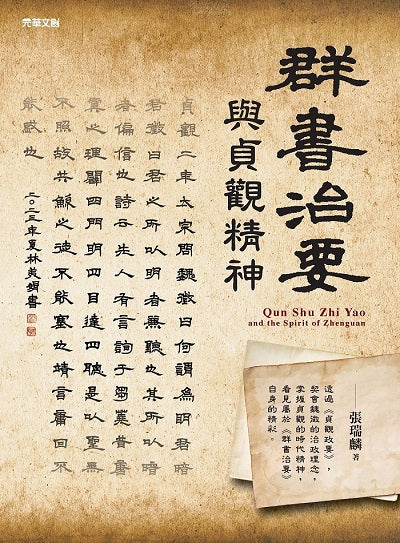 元華文創
群書治要
與貞觀精神
Qun Shu Zhi Yao
and the Spirit of Zhenguan
貞觀二年太宗問魏徵曰何謂為明君暗
君徵曰君之所以明者兼聽也其所以暗
者偏信也詩云先人有言詢于芻蕘昔唐
虞之理闢四門明四目達四聰是以聖無
不照故共鯀之徒不能塞也靖言庸回不
能惑也
二〇二三年夏林書
透過《貞觀政要》，
契會魏徵的治政理念，
掌握貞觀的時代精神，
看見屬於《群書治要》
自身的精彩。
張瑞麟 著